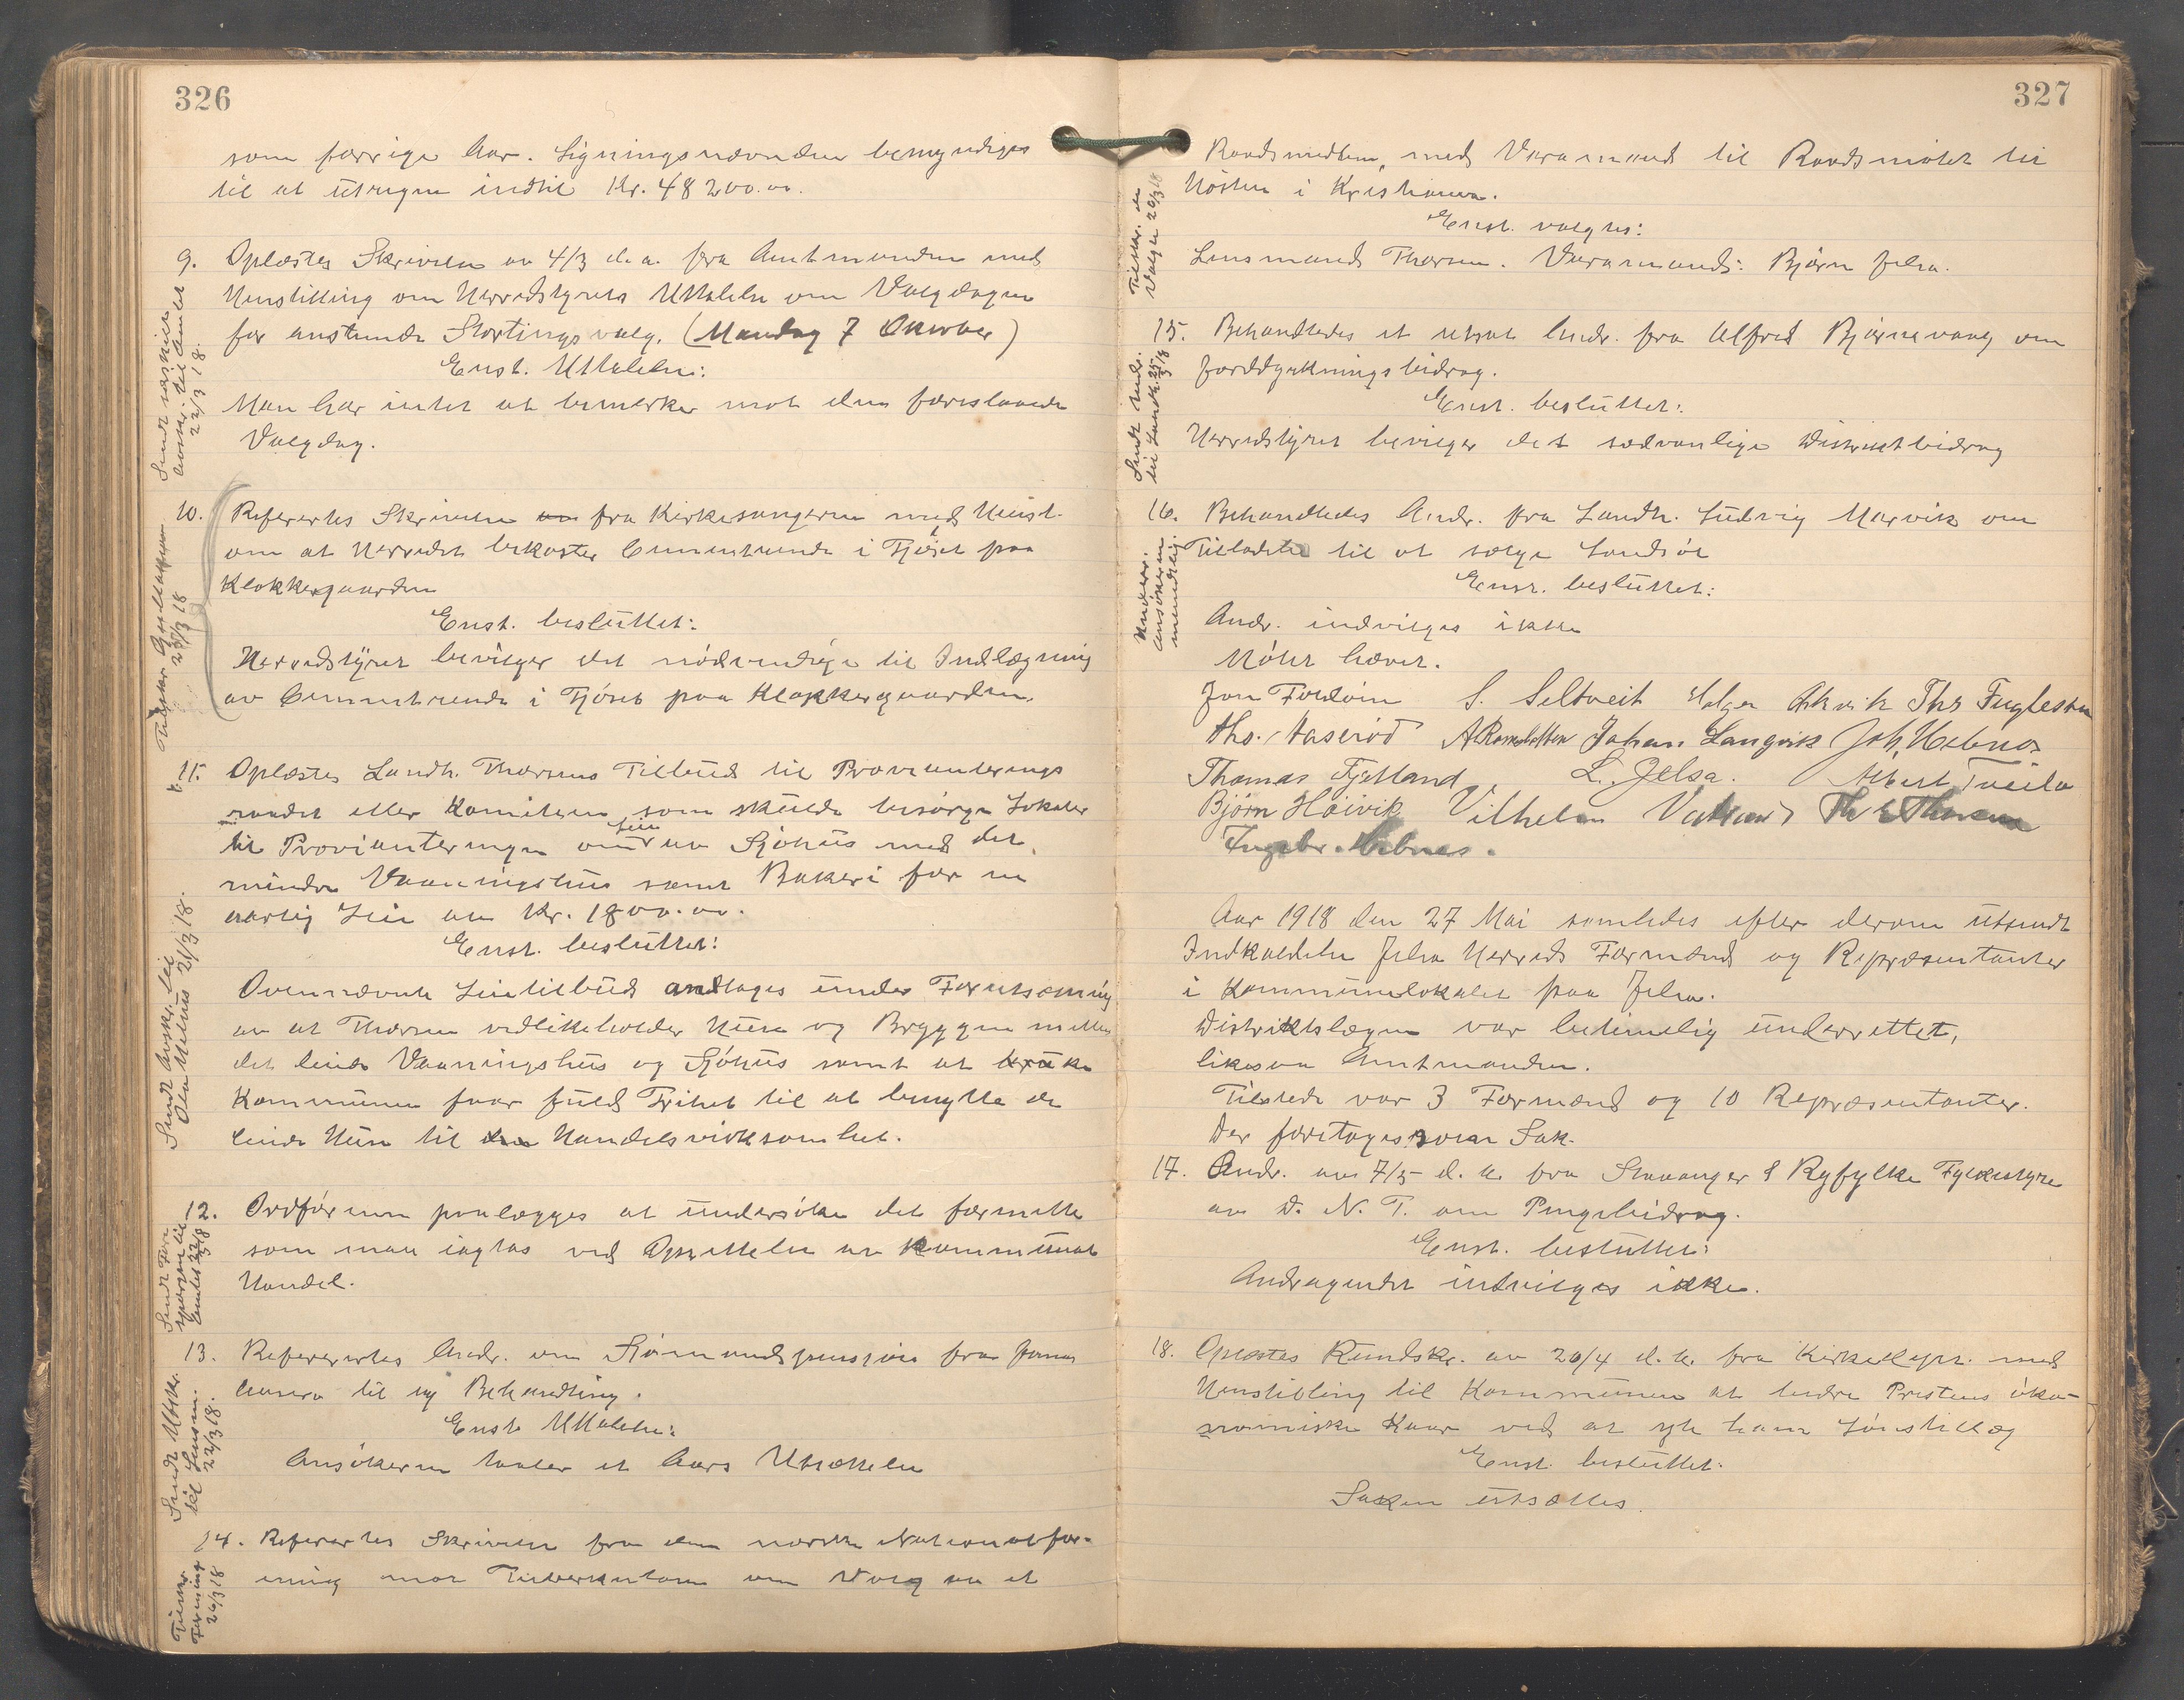 326
som forrige Aar. Ligningsnævnden bemyndiges
til at utrugne indtil Kr. 48 200.00.
9. Oplæstes Skrivelse av 4/3 d. a. fra Amtmanden med
Henstilling om Herredstyrets Uttalelse om Valgdagen
for anstunde Stortingsvalg. (Mandag 7 Oktober)
Enst. Uttalelse:
Man har intet at bemerke mot den foreslaaede
Valgdag.
Sendt særskilt
avskr. til Amtet
22/3 18.
10. Refertes Skrivelse fra Kirkesangeren med Henst.
om at Herredet bekoster Cementrende i Fjøset paa
Klokkergaarden
Enst. besluttet:
Herredstyret bevilger det nødvendige til Indlægning
av Cementrende i Fjøset paa Klokkergaarden.
11. Oplæstes Landh. Thorsens Tilbud til Provianterings
raadet eller Komiteen som skulde besørge Lokaler
til Provianteringen om Leie av Sjøhus med det
mindre Vaaningshus samt Bakeri for en
aarlig Leie av Kr. 1800.00.
Enst. besluttet:
Ovennævnte Leietilbud andtages under Forutsætning
av at Thorsen vedlikeholder Husen og Bryggen mellem
det leiede Vaaningshus og Sjøhus samt at
Kommunen faar fuld Frihet til at benytte de
leiede Huse til Handelsvirksomhet.
Sendt Avskr. til
21/3 18.
12. Ordføreren paalægges at undersøke det fornødte
som maa iagtas ved Oprettelse av Kommunal
Handel.
Sendt Fore
spørgsm. til
Amtet 22/3 18
13. Refertes Andr. om Sjømandspension fra Jonas
til ny Behandling.
Enst. Uttalelse:
Ansøkeren taaler et Aars Utsættelse
Sendt Utskr.
til Lensm.
22/3 18.
14. Refertes Skrivelse fra den norske Nationalfor-
ening mot Tuberkulose om Valg av et
Tilskr.
Foreningen
26/3 18
327
Raadsmedlem, med Varamand til Raadsmøtet til
Høsten i Kristiania.
Enst. valgtes:
Lensmand Thorsen. Varamand: Bjørn Jelsa.
Tilskr. de
Valgte 26/3 18
15. Behandledes et utsat Andr. fra Alfred Bjørnevaag om
Jorddyrkningsbidrag.
Enst. besluttet:
Herredstyret bevilger det sædvanlige Distriktbidrag
Sendt Andr.
til Landh. 25/3 18
16. Behandledes Andr. fra Landh. Ludvig Marvik om
Tilladelse til at sælge Landsøl
Enst. besluttet:
Andr. indvilges ikke
Underr.
Ansøkeren
mundtlig.
Møtet hævet.
Jon Foldøen S. Seltveit Holger Økvik Ths Fuglesten
Ths. Aaserød A Ramsletten Johan Langvik Joh Hebnes
Thomas Fjetland L. Jelsa. Albert Tveita
Bjørn Høivik Vilhelm Vatland Th E Thorsen
Ingebr. Hebnes.
Aar 1918 den 27 Mai samledes efter derom utsendt
Indkaldelse Jelsa Herreds Formænd og Repræsentanter
i Kommunelokalet paa Jelsa.
Distriktslægen var betimelig underrettet,
likesaa Amtmanden.
Tilstede var 3 Formænd og 10 Repræsentanter.
Der foretages saa Sak.
17. Andr. av 7/5 d. a. fra Stavanger & Ryfylke Fylkestyre
av D. N. T. om Pengebidrag.
Enst. besluttet:
Andragendet indvilges ikke.
18. Oplæstes Rundskr. av 26/4 d. a. fra Kirkedept. med
Henstilling til Kommunen at bedre Prestens øko-
nomiske Kaar ved at yte ham Lønstillæg
Enst. besluttet:
Saken utsættes.